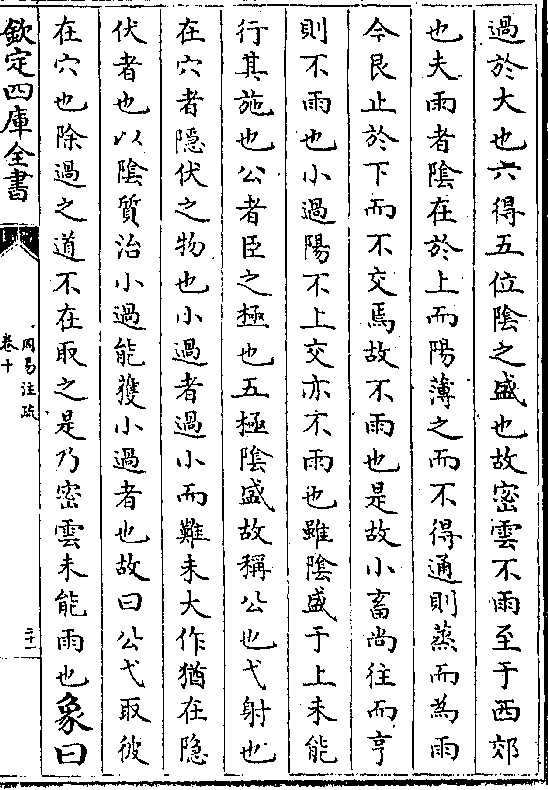 過於大也六得五位陰之盛也故密雲不雨至于西郊
也夫雨者陰在於上而陽薄之而不得通則蒸而為雨
今艮止於下而不交焉故不雨也是故小畜尚往而亨
則不雨也小過陽不上交亦不雨也雖陰盛于上未能
行其施也公者臣之極也五極陰盛故稱公也弋射也
在穴者隱伏之物也小過者過小而難未大作猶在隐
伏者也以陰質治小過能獲小過者也故曰公弋取彼
在穴也除過之道不在取之是乃密雲未能雨也象曰
欽定四庫全書
周易注疏
卷十
二十二